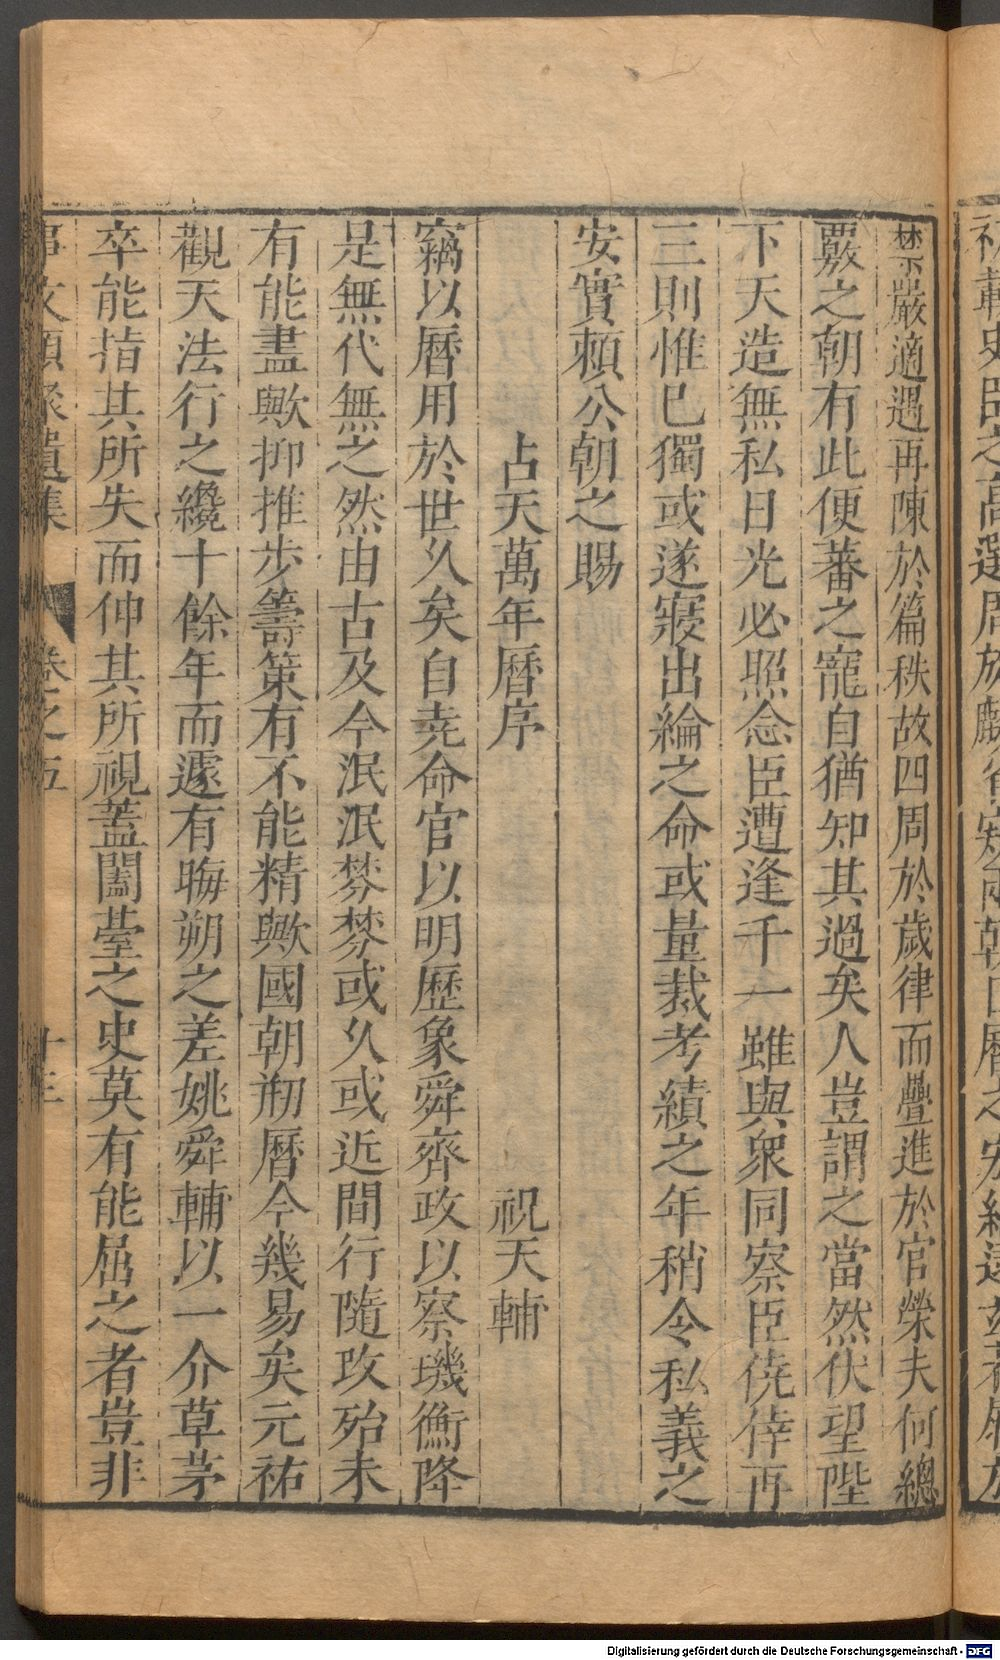 禁嚴適遇再陳於篇秩故四周於歲律而疊進於官榮夫何總
覈之朝有此便蕃之寵自猶知其過矣人豈謂之當然伏望陛
下天造無私日光必照念臣遭逢千一雖與衆同察臣僥倖再
三則惟已獨或遂寢出綸之命或量裁考績之年稍令私義之
安實頼公朝之賜
占天萬年曆序 祝天輔
竊以曆用於世久矣自尭命官以明歴象舜齊政以察璣衡降
是無代無之然由古及今泯泯棼棼或久或近間行隨攻殆未
有能盡歟抑推步籌策有不能精歟國朝剏曆今幾易矣元祐
觀天法行之纔十餘年而遽有晦朔之差姚舜輔以一介草茅
卒能指其所失而伸其所視蓋闔臺之史莫有能屈之者豈非
事文類聚遺集 卷之五 十三
Digitalisierung gefördert durch die Deutsche Forschungsgemeinschaft - DFG